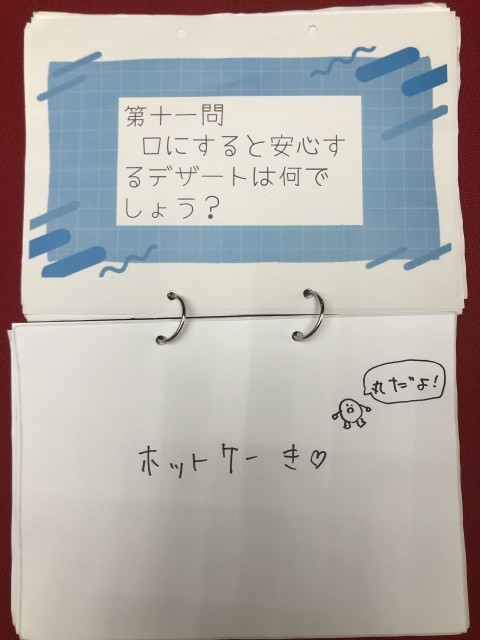 第十一問
口にすると安心す
るデザートは何で
しょう？
丸だよ！
ホットケーき♡